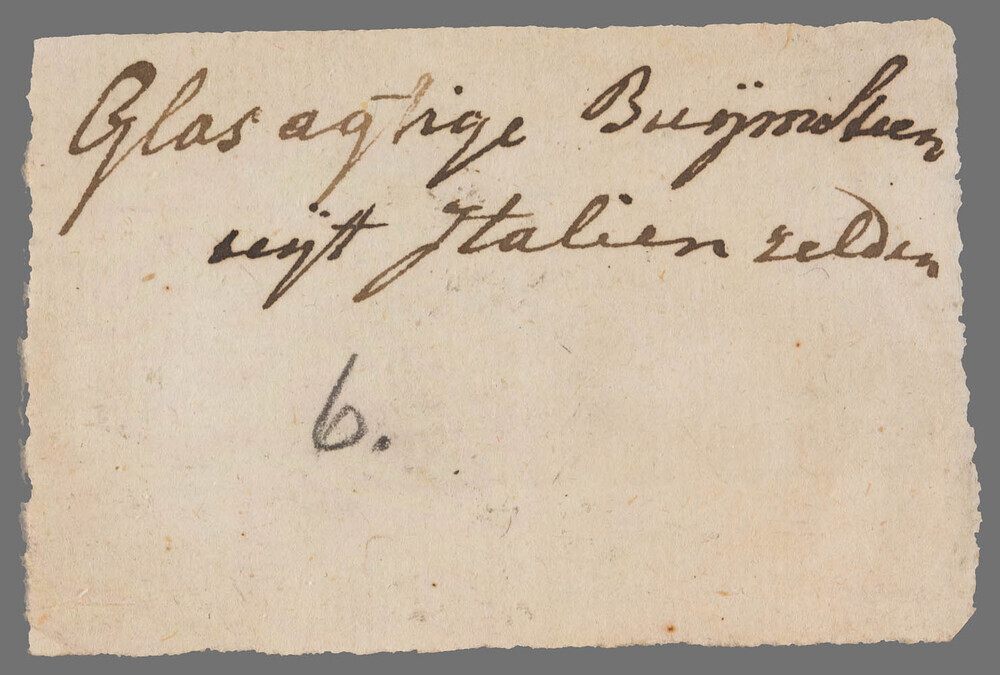 Glas agtige Buÿmsteen
uÿt Italien zelden
6.